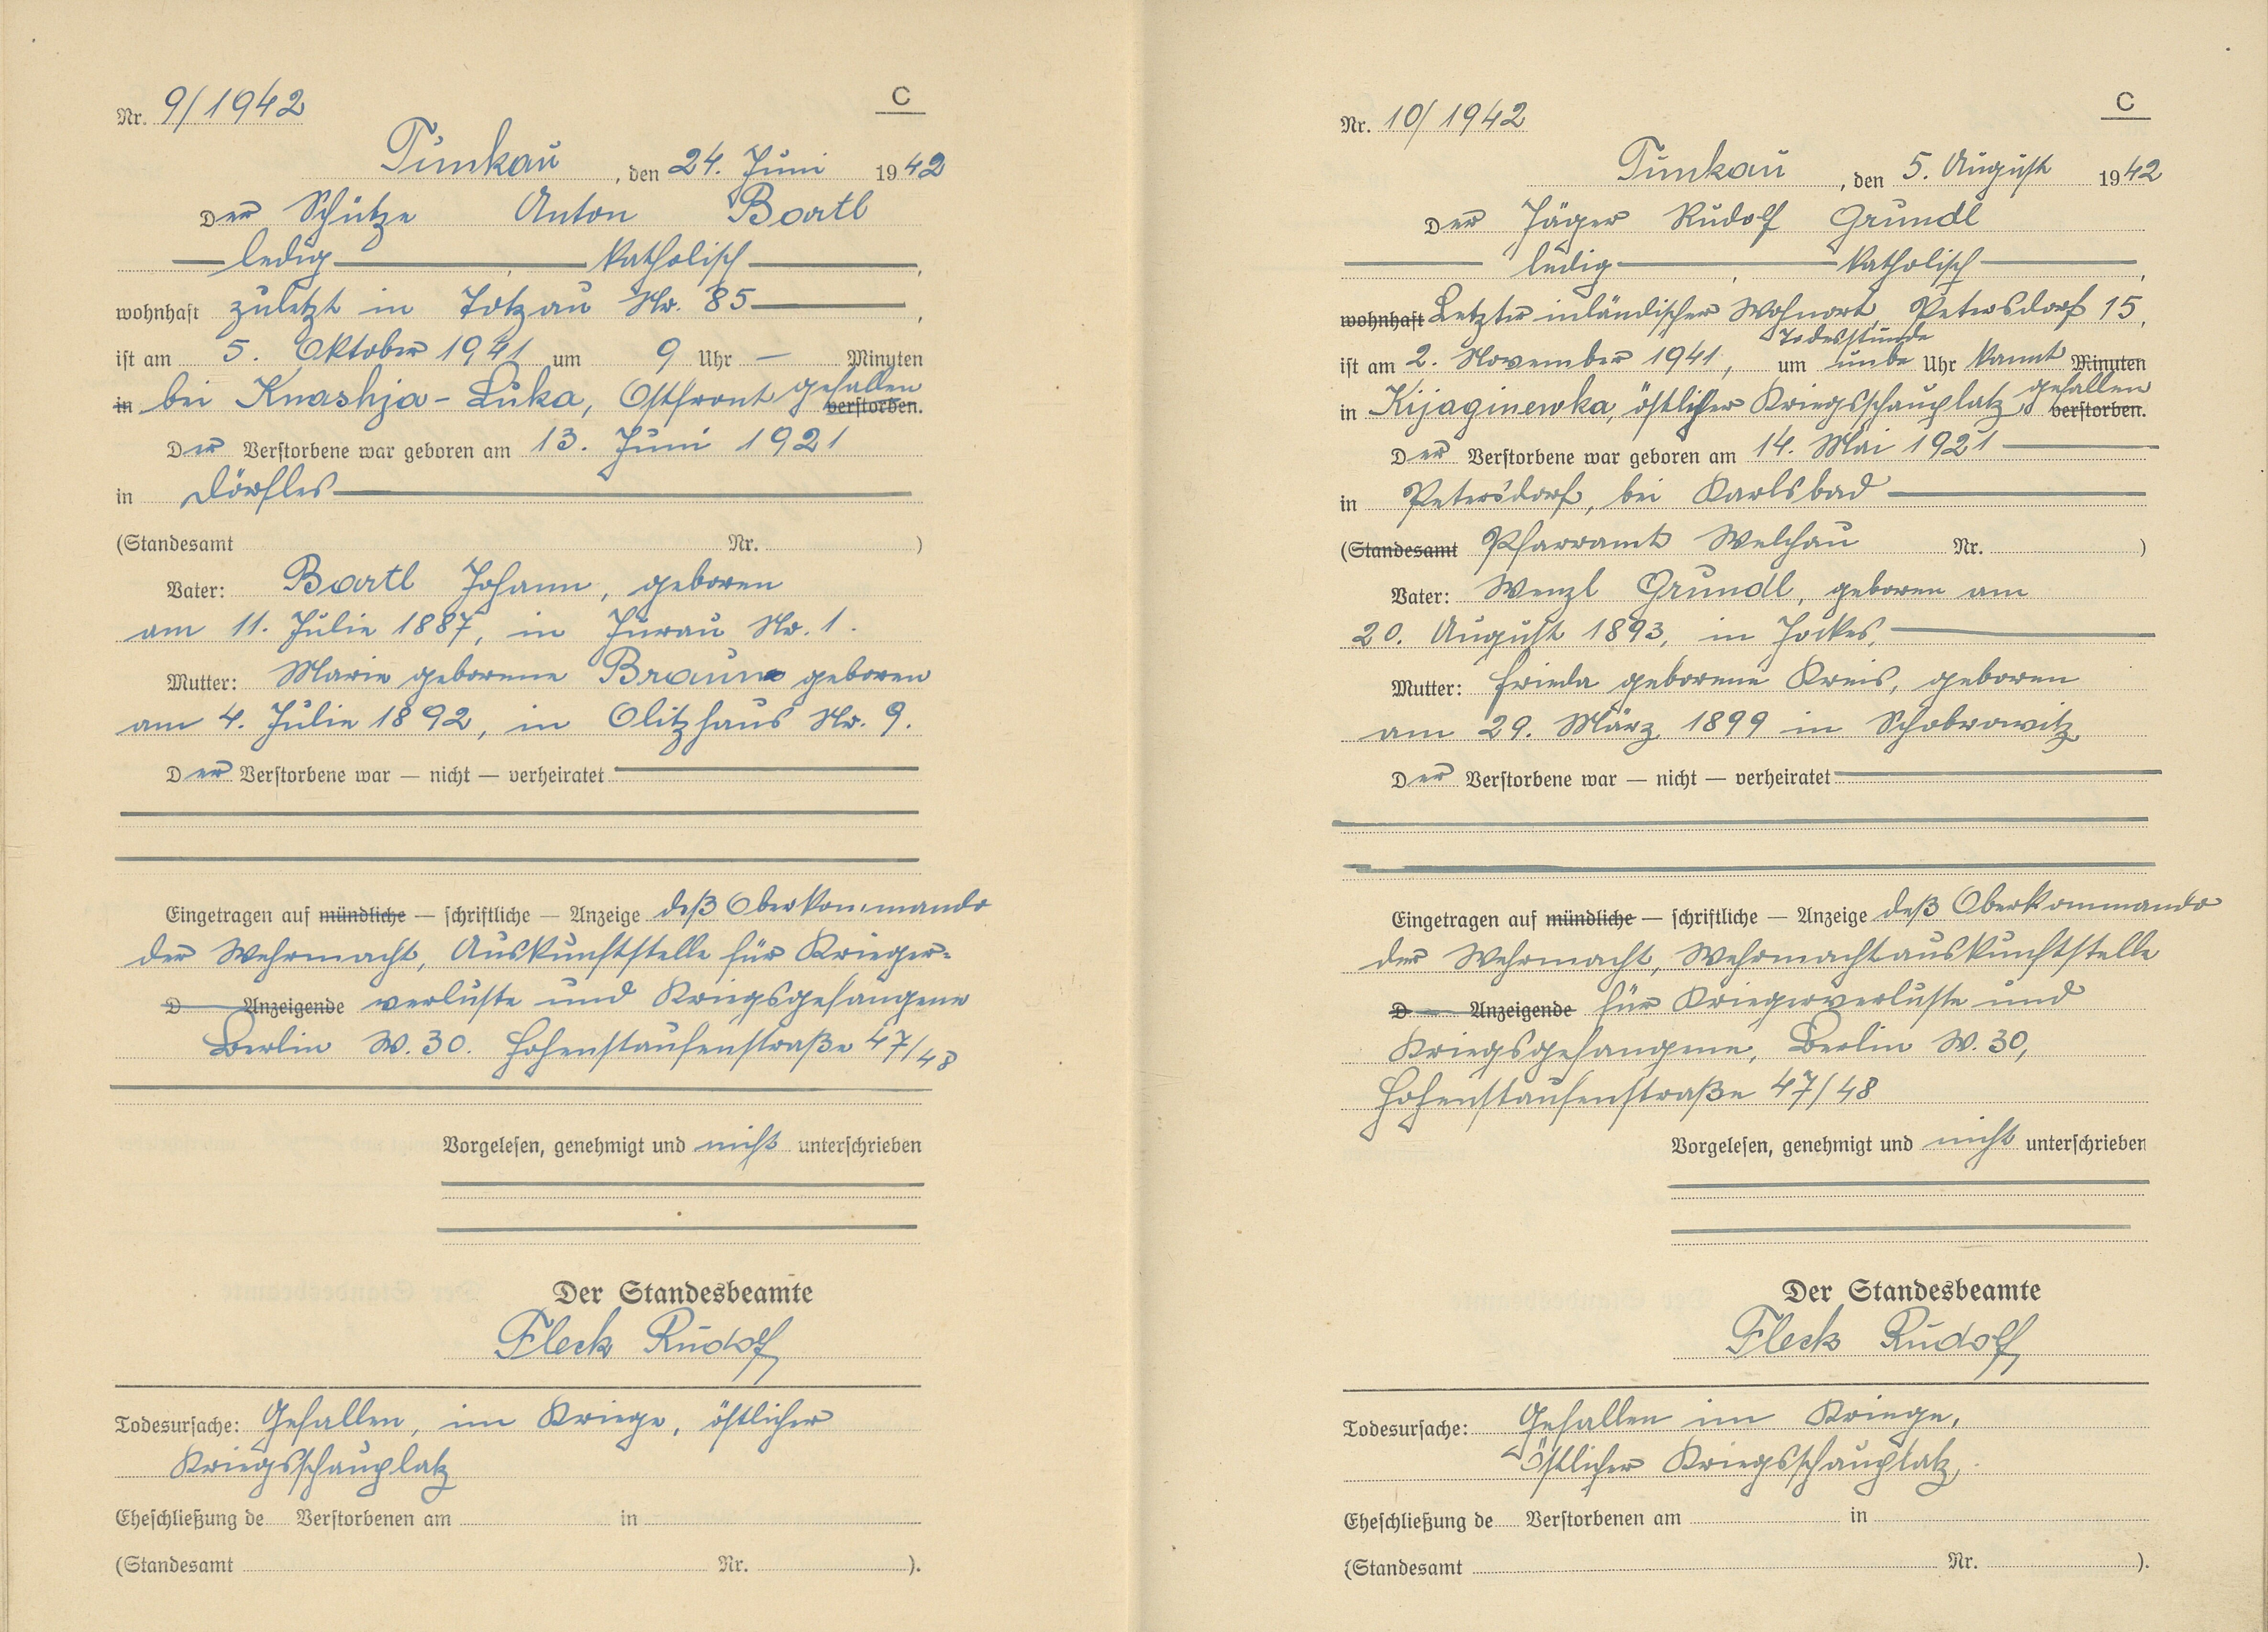 C
Nr. 9/1942
Tunkau, den 24. Juni 1942
Der Schütze Anton Bartl
ledig, katholisch,
wohnhaft zuletzt in Totzau Nr. 85,
ist am 5. Oktober 1941 um 9 Uhr — Minuten
in bei Knashja-Luka, Ostfront gefallen verstorben.
Der Verstorbene war geboren am 13. Juni 1921
in Dörfles
(Standesamt Nr. )
Vater: Bartl Johann, geboren
am 11. Julie 1887, in Jurau Nr. 1.
Mutter: Marie geborene Braun geboren
am 4. Julie 1892, in Olitzhaus Nr. 9.
Der Verstorbene war — nicht — verheiratet
Eingetragen auf mündliche — schriftliche — Anzeige deß Oberkommando
der Wehrmacht, Auskunftstelle für Krieger-
D Anzeigende verluste und Kriegsgefangene
Berlin W. 30. Hohenstaufenstraße 47/48
Vorgelesen, genehmigt und nicht unterschrieben
Der Standesbeamte
Fleck Rudolf
Todesursache: Gefallen, im Kriege, östlicher
Kriegsschauplatz
Eheschließung de Verstorbenen am in
(Standesamt Nr. ).
C
Nr. 10/1942
Tunkau, den 5. August 1942
Der Jäger Rudolf Grundl
ledig, katholisch,
wohnhaft Letzter inländischer Wohnort, Petersdorf 15,
Todesstunde
ist am 2. November 1941, um unbe Uhr kannt Minuten
in Kijaginewka, östlicher Kriegsschauplatz gefallen verstorben.
Der Verstorbene war geboren am 14. Mai 1921
in Petersdorf, bei Karlsbad
(Standesamt Pfarramt Welchau Nr. )
Vater: Wenzl Grundl, geboren am
20. August 1893, in Jokes,
Mutter: Frieda geborene Kreis, geboren
am 29. März 1899 in Schobrowitz
Der Verstorbene war — nicht — verheiratet
Eingetragen auf mündliche — schriftliche — Anzeige deß Oberkommando
der Wehrmacht, Wehrmachtauskunftstelle
D Anzeigende für Kriegerverluste und
Kriegsgefangene, Berlin W. 30,
Hohenstaufenstraße 47/48
Vorgelesen, genehmigt und nicht unterschrieben
Der Standesbeamte
Fleck Rudolf
Todesursache: Gefallen im Kriege,
Östlicher Kriegsschauplatz,
Eheschließung de Verstorbenen am in
(Standesamt Nr. ).